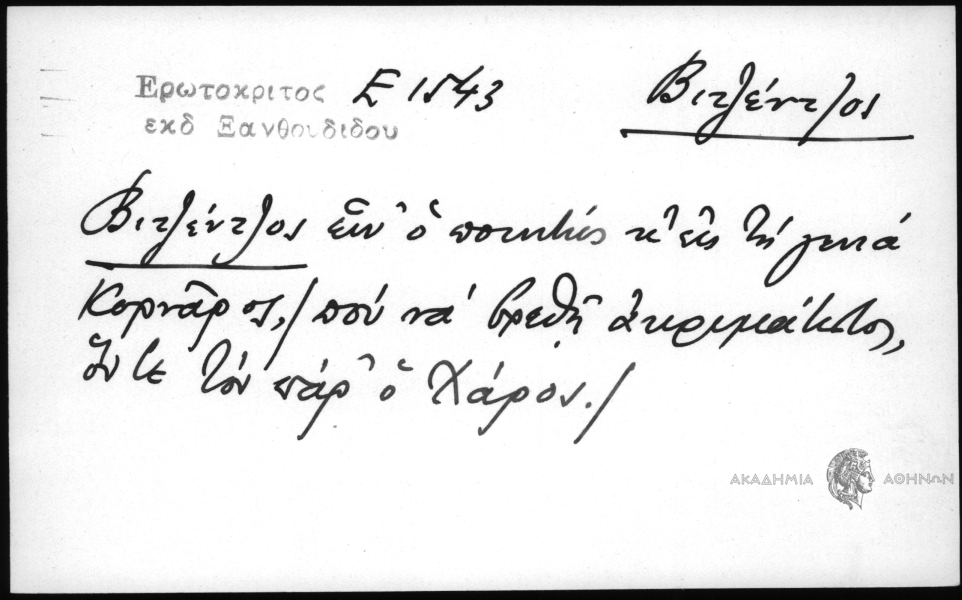 Ερωτοκριτος Ε 1543 Βιτζέντζος
εκδ Ξανθουδιδου
Βιτζέντζος εἶν' ὁ ποιητὴς κ' εἰς τὴ γενιὰ
Κορνάρος,/ ποὺ νὰ βρεθῇ ἀκριμάτιστος,
ὅντε τὸν πάρ' ὁ Χάρος./
ΑΚΑΔΗΜΙΑ ΑΘΗΝΩΝ